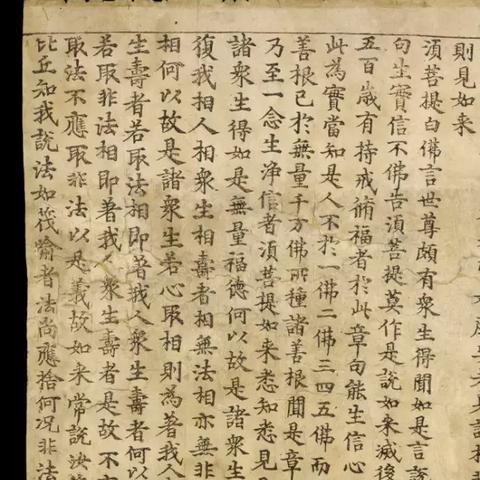 則見如来
須菩提白佛言世尊頗有衆生得聞如是言說
句生實信不佛告須菩提莫作是說如来滅後
五百歲有持戒脩福者於此章句能生信心
此為實當知是人不於一佛二佛三四五佛而
善根已於無量千万佛所種諸善根聞是章
乃至一念生淨信者須菩提如来悉知悉見
諸衆生得如是無量福德何以故是諸衆生
復我相人相衆生相壽者相無法相亦無非
相何以故是諸衆生若心取相則為著我人
生壽者若取法相即著我人衆生壽者何以
若取非法相即著我衆生壽者是故不
取法不應取非法以是義故如来常說汝
比丘知我說法如筏喻者法尚應捨何況非法